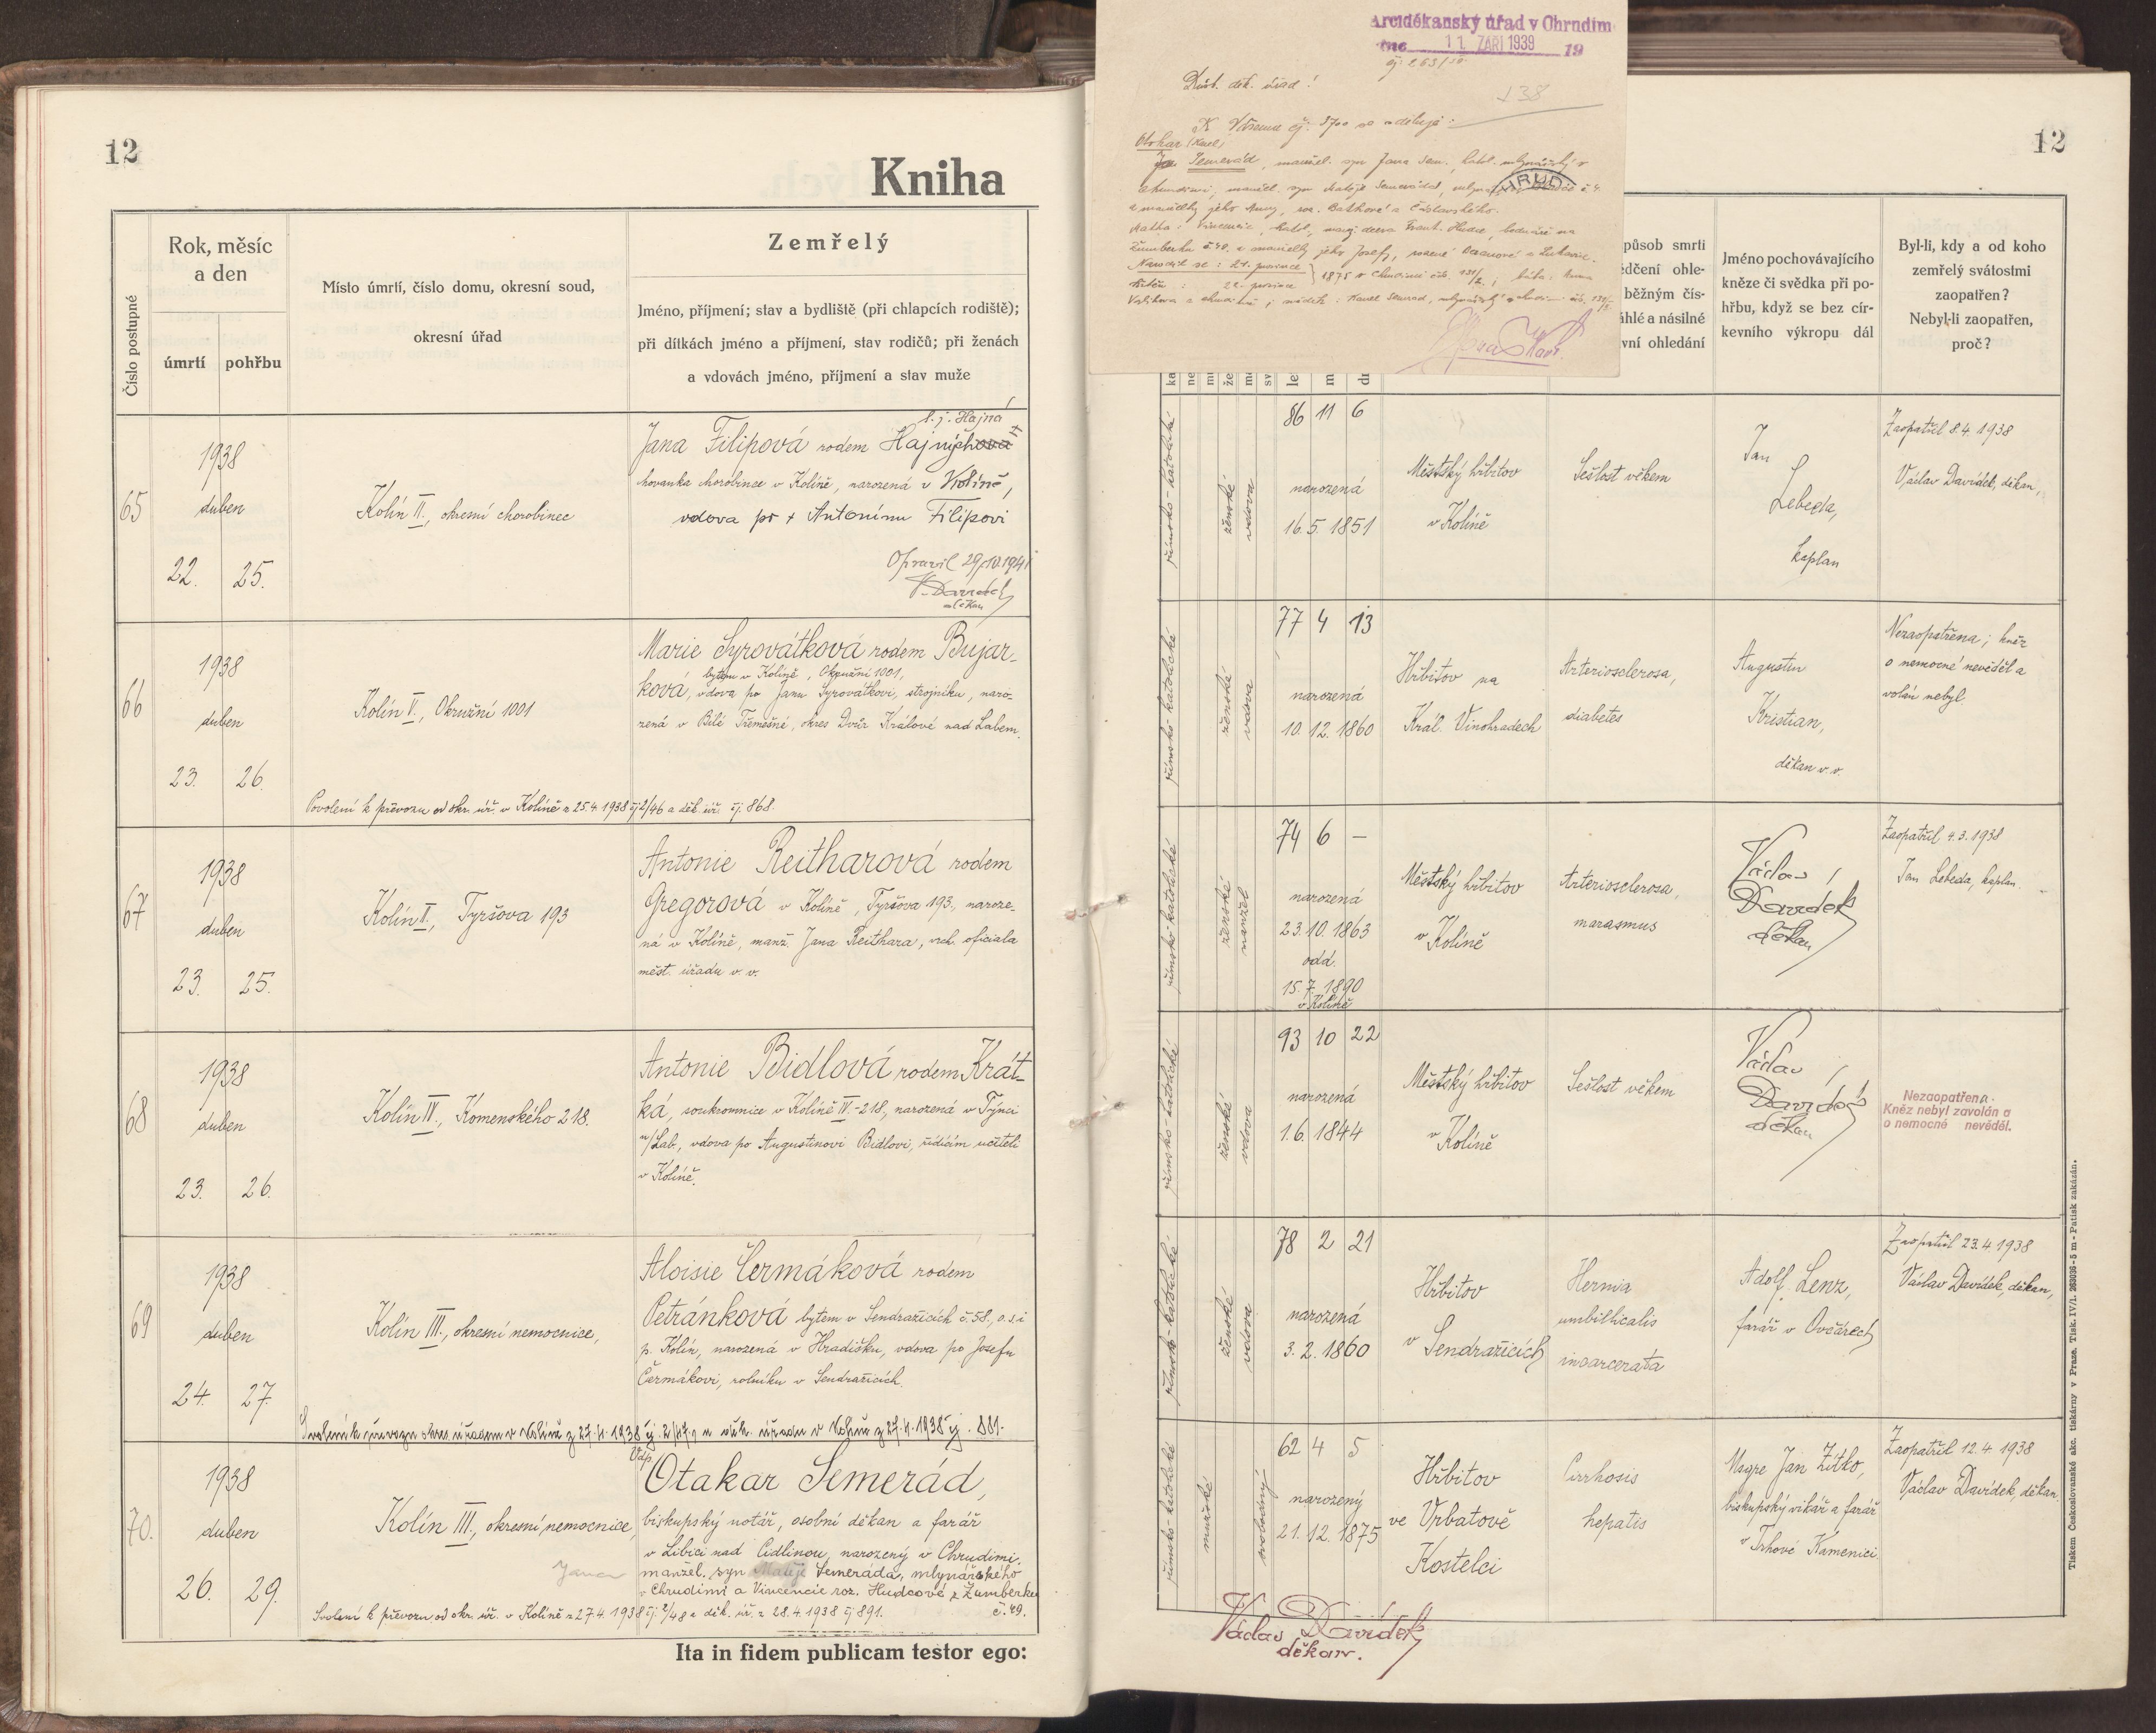 12
Kniha
Číslo postupné
Rok, měsíc
a den
úmrtí
pohřbu
Místo úmrtí, číslo domu, okresní soud,
okresní úřad
Zemřelý
Jméno, příjmení; stav a bydliště (při chlapcích rodiště);
při dítkách jméno a příjmení, stav rodičů; při ženách
a vdovách jméno, příjmení a stav muže
65
1938
duben
22. 25.
Kolín II., okresní chorobinec
t. j. Hajná
Jana Filipová rodem Hajnýchova
chovanka chorobince v Kolíně, narozená v Kolíně,
vdova po + Antonínu Filipovi
Opravil 29/10 1941
V. Davídek
děkan
66
1938
duben
23. 26.
Kolín V., Okružní 1001
Marie Syrovátková rodem Bujar-
bytem v Kolíně, Okružní 1001,
ková, vdova po Janu Syrovátkovi, strojníku, naro-
zená v Bílé Třemešné, okres Dvůr Králové nad Labem.
Povolení k převozu od okr. úř. v Kolíně z 25.4.1938 čj 2/46 a děk. úř. čj. 868.
67
1938
duben
23. 25.
Kolín I., Tyršova 193
Antonie Reitharová rodem
Gregorová v Kolíně, Tyršova 193, naroze-
ná v Kolíně, manž. Jana Reithara, vrch. oficiala
měst. úřadu v. v.
68
1938
duben
23. 26.
Kolín IV., Komenského 218.
Antonie Bidlová rodem Krát-
ká, soukromnice v Kolíně IV.-218, narozená v Týnci
n/Lab., vdova po Augustinovi Bidlovi, řídícím učiteli
v Kolíně.
69
1938
duben
24. 27.
Kolín III., okresní nemocnice,
Aloisie Čermáková rodem
Petránková bytem v Sendražicích č. 58., o. s. i
p. Kolín, narozená v Hradišku, vdova po Josefu
Čermákovi, rolníku v Sendražicích.
Svolení k převozu okres. úřadem v Kolíně z 27.4.1938 čj. 2/47, a děk. úřadu v Kolíně z 27.4.1938 čj. 881.
70.
1938
duben
26. 29.
Kolín III., okresní nemocnice,
Vdp.
Otakar Semerád,
biskupský notář, osobní děkan a farář
v Libici nad Cidlinou, narozený v Chrudimi,
Jana
manžel. syn Matěje Semeráda, mlynářského
v Chrudimi a Vincencie roz. Hudcové z Žumberku
č. 49.
Svolení k převozu od okr. úř. v Kolíně z 27.4.1938 čj. 2/48 a děk. úř. z 28.4.1938 čj 891.
Ita in fidem publicam testor ego:
Arciděkanský úřad v Chrudim
dne 11. ZÁŘÍ 1939 19
Důst. děk. úřad!
138
K Vašemu čj. 3700 se sděluje:
Otokar (Karel)
Jan Semerád, manžel. syn Jana Sem., katol. mlynářský v
Chrudimi, manžel. syn Matěje Semeráda,
HRUD
a manželky jeho Anny, roz.
Matka: Vincencie, katol., manž. dcera Frant. Hudce,
Žumberku č. 49. a manželky jeho Josefy, rozené
Narodil se: 21. prosince
Křtěn: 22. prosince
1875 v Chrudimi
12
působ smrti
dčení ohle-
běžným čís-
áhlé a násilné
vní ohledání
Jméno pochovávajícího
kněze či svědka při po-
hřbu, když se bez cír-
kevního výkropu dál
Byl-li, kdy a od koho
zemřelý svátostmi
zaopatřen?
Nebyl-li zaopatřen,
proč?
římsko-katolické
ženské
vdova
86 11 6
narozená
16. 5. 1851
Městský hřbitov
v Kolíně
Sešlost věkem
Jan
Lebeda,
kaplan
Zaopatřil 8.4. 1938
Václav Davídek, děkan,
římsko-katolické
ženské
vdova
77 4 13
narozená
10. 12. 1860
Hřbitov na
Král. Vinohradech
Arteriosclerosa,
diabetes
Augustin
Kristian,
děkan v. v.
Nezaopatřena; kněz
o nemocné nevěděl a
volán nebyl.
římsko-katolické
ženské
manžel
74 6 —
narozená
23. 10. 1863
odd.
15. 7. 1890
v Kolíně
Městský hřbitov
v Kolíně
Arteriosclerosa,
marasmus
Václav
Davídek
děkan
Zaopatřil 4.3. 1938
Jan Lebeda, kaplan.
římsko-katolické
ženské
vdova
93 10 22
narozená
1. 6. 1844
Městský hřbitov
v Kolíně
Sešlost věkem
Václav
Davídek
děkan
Nezaopatřena.
Kněz nebyl zavolán a
o nemocné nevěděl.
římsko-katolické
ženské
vdova
78 2 21
narozená
3. 2. 1860
Hřbitov
v Sendražicích
Hernia
umbilicalis
incarcerata
Adolf Lenz,
farář v Ovčárech
Zaopatřil 23.4. 1938
Václav Davídek, děkan,
římsko-katolické
mužské
svobodný
62 4 5
narozený
21. 12. 1875
Hřbitov
ve Vrbatově
Kostelci
Cirrhosis
hepatis
Msgre Jan Žitko,
biskupský vikář a farář
v Trhové Kamenici
Zaopatřil 12.4 1938
Václav Davídek, děkan
Václav Davídek
děkan.
Tiskem Československé akc. tiskárny v Praze. Tisk. IV/1. 263036-5 m - Patisk zakázán.